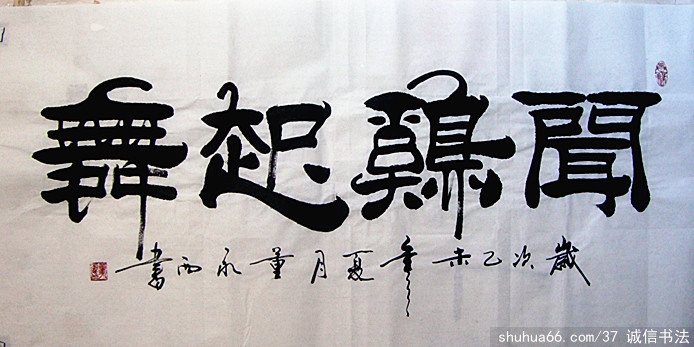 聞鷄起舞
歲次乙未年夏月董永西書
shuhua66.com/37 诚信书法